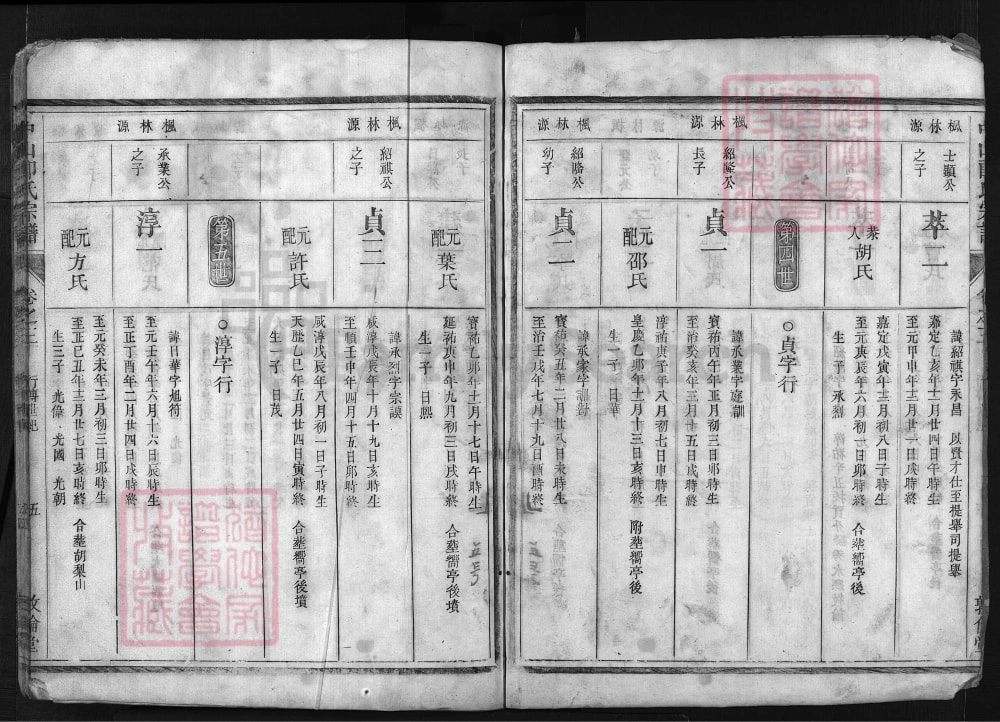 楓林源
士顯公之子
萃二
諱紹祺字永昌 以賢才仕至提舉司提舉
嘉定乙亥年十二月廿四日午時生
至元甲申年十二月廿一日戌時終
恭人胡氏
嘉定戊寅年十二月初八日子時生
至元庚辰年六月初一日卯時終 合塟獳亭後
生一子 承烈
第四世
○貞字行
楓林源
紹隆公長子
貞一
諱承業字庭訓
寳祐丙午年正月初三日卯時生
至治癸亥年三月十五日亥時終
元配邵氏
淳祐庚子年八月初七日申時生
皇慶乙卯年十二月十三日亥時終 附塟獳亭後
生一子 日華
楓林源
紹隆公幼子
貞二
諱承家字
寳祐癸丑年二月廿八日未時生
至治壬戌年七月十九日酉時終
元配葉氏
寳祐乙卯年十一月十七日午時生
延祐庚申年九月初三日戌時終 合塟獳亭後墳
生一子 日熙
楓林源
紹祺公之子
貞三
諱承烈字宗謨
咸淳戊辰年十月十九日亥時生
至順壬申年四月十五日卯時終
元配許氏
咸淳戊辰年八月初一日子時生
天歷己巳年五月廿四日寅時終 合塟獳亭後墳
生一子 日茂
第五世
○淳字行
楓林源
承業公之子
淳一
諱日華字旭符
至元壬午年六月十六日辰時生
至正丁酉年二月廿四日戌時終
元配方氏
至元癸未年三月初三日卯時生
至正己丑年十二月廿七日亥時終 合塟胡梨山
生三子 光偉 光國 光朝
五